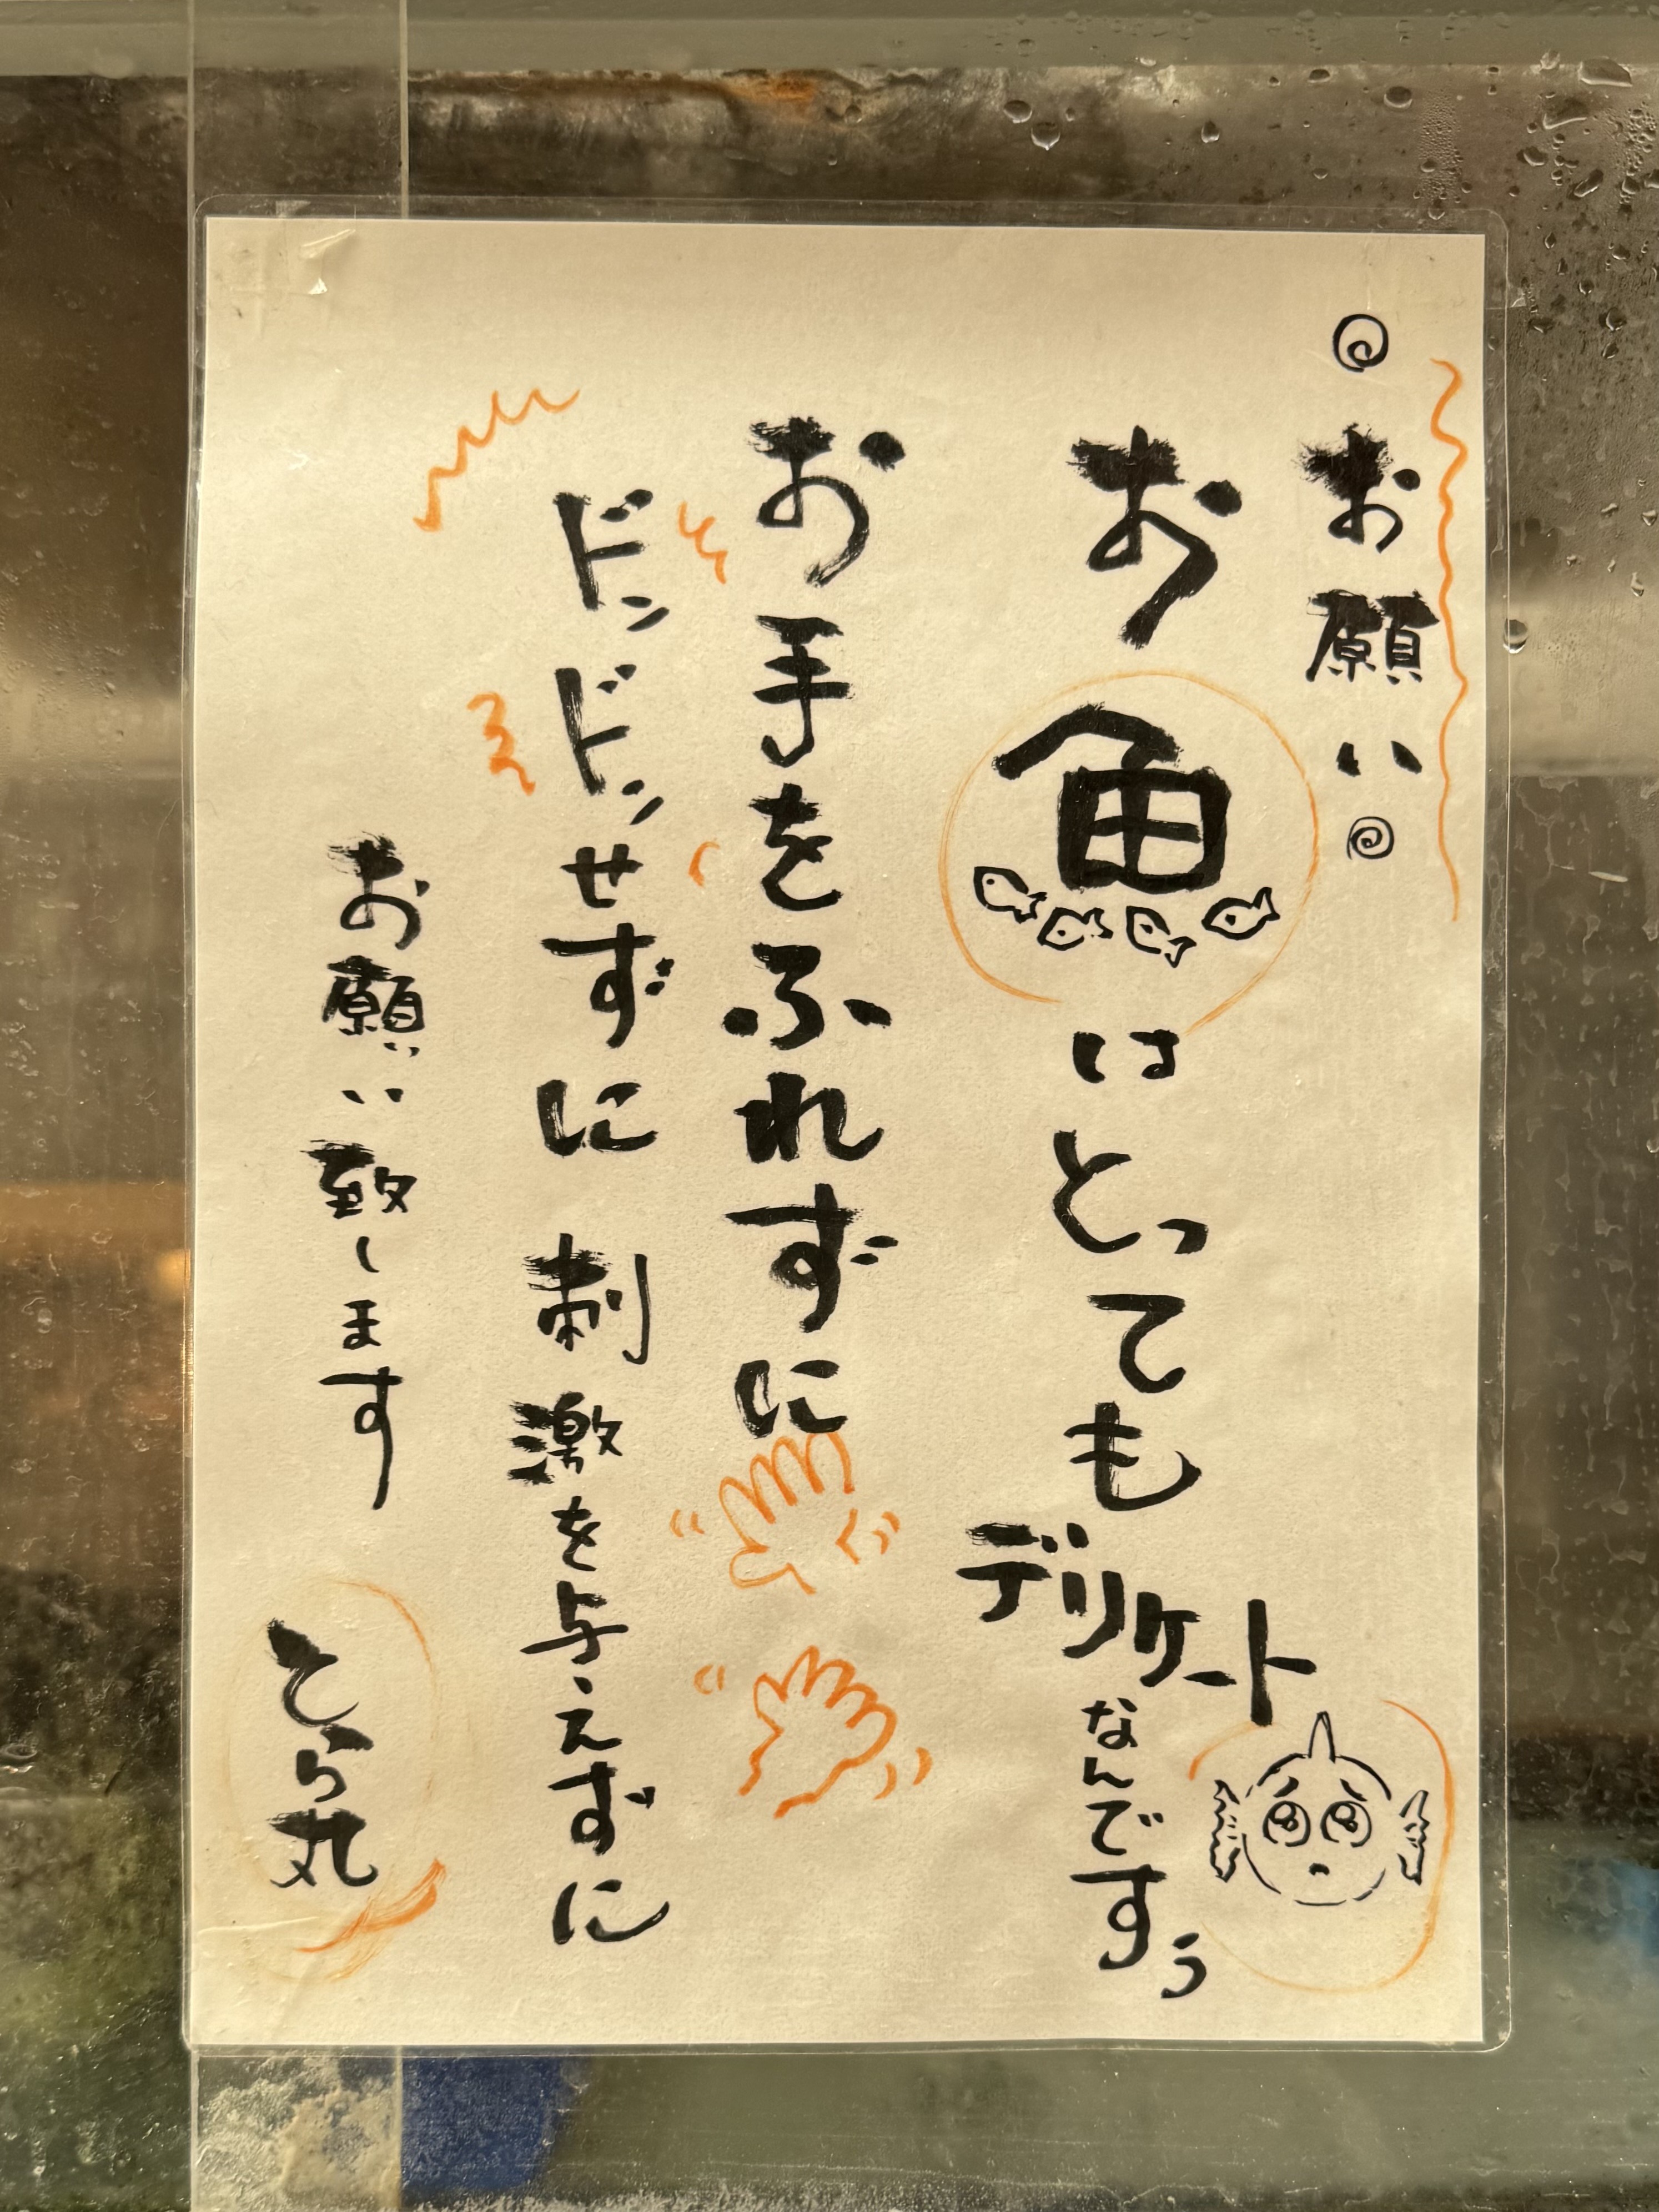 お願い
お魚はとってもデリケートなんですぅ
お手をふれずに
ドンドンせずに刺激を与えずに
お願い致します
とら丸